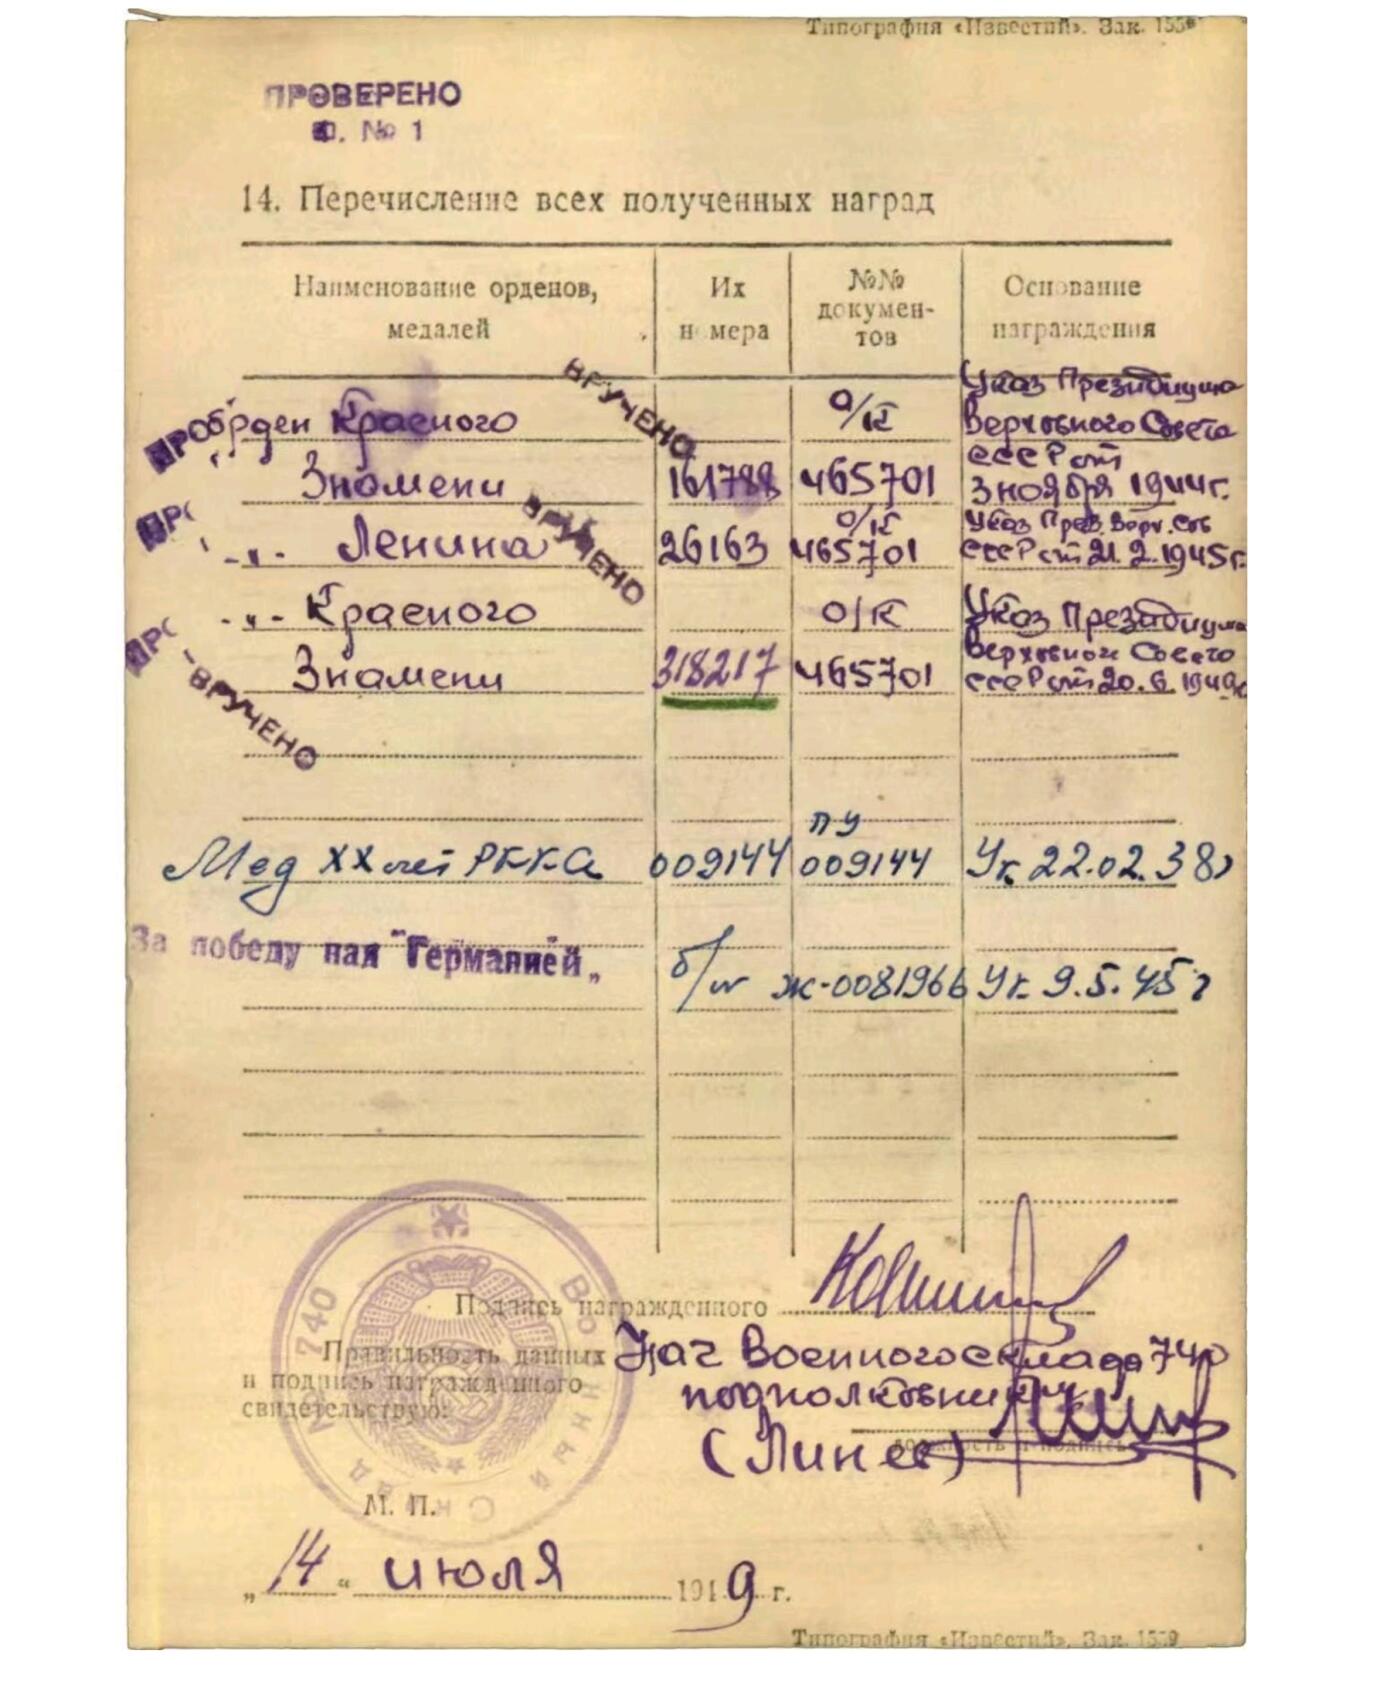 Типография «Известий». Зак. 155
ПРОВЕРЕНО
№ 1
14. Перечисление всех полученных наград
Наименование орденов, медалей
Их номера
№№ документов
Основание награждения
ВРУЧЕНО
Орден Красного
Знамени
161788
о/к
465701
Указ Президиума
Верховного Совета
СССР от
3 ноября 1944г.
ВРУЧЕНО
-"- Ленина
26163
о/к
465701
Указ През. Верх. Сов
СССР от 21.2.1945г.
-"- Красного
Знамени
318217
о/к
465701
Указ Президиума
Верховного Совета
СССР от 20.6.1949г
ВРУЧЕНО
Мед XX лет РККА
009144
ПУ
009144
Ук 22.02.38г
За победу над "Германией"
б/н
Ж-0081966
Ук. 9.5.45г
Подпись награжденного
Правильность данных
и подпись награжденного
свидетельствую:
Нач Военного склада 740
подполковник
(Линев)
должность и подпись
Военный Склад № 740
М. П.
„14“ июля 1949 г.
Типография «Известий». Зак. 1559